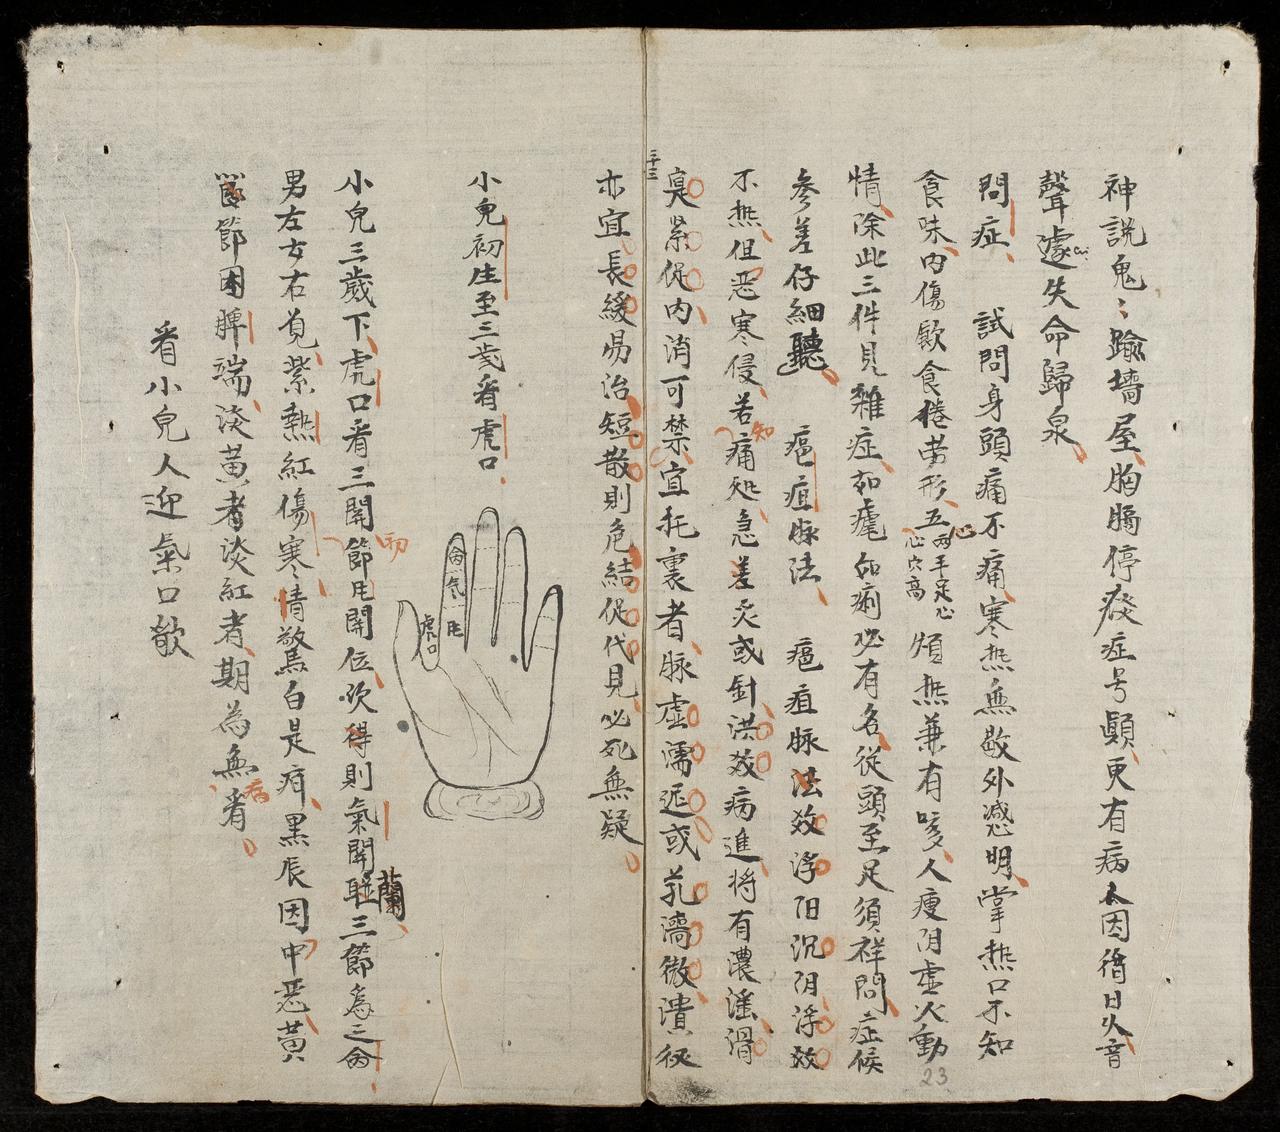 神說鬼〻踰墻屋胸膈停痰症号顛更有病太因循日久音
聲遽失命歸泉
問症 試問身頭痛不痛寒热無敬外感明掌热口不知
食味內傷飲食倦劳形五心两手足心心穴高煩热兼有咳人瘦阴虚火動
情除此三件見雜症如瘧如痢必有名従頭至足須祥問症候
參差仔細聽 瘡疽脉法 瘡疽脉法效浮阳沉阴浮效
不热但恶寒侵若知痛処急差灸或針洪效病進将有濃滛滑
寔緊促內消可禁宜托裏者脉虚濡迟或芤濇微潰後
二十三
亦宜長緩易治短散則危結促代見必死無疑
小兒初生至三岁看虎口
命
氣
虎口
小兒三歲下虎口看三関節初関位次得則氣関蘭三節為三命
男左女右見紫熱紅傷寒情驚白是疳黒辰因中恶黃
節困脾端淡黃者淡紅者期為無病看
看小兒人迎氣口欹
23